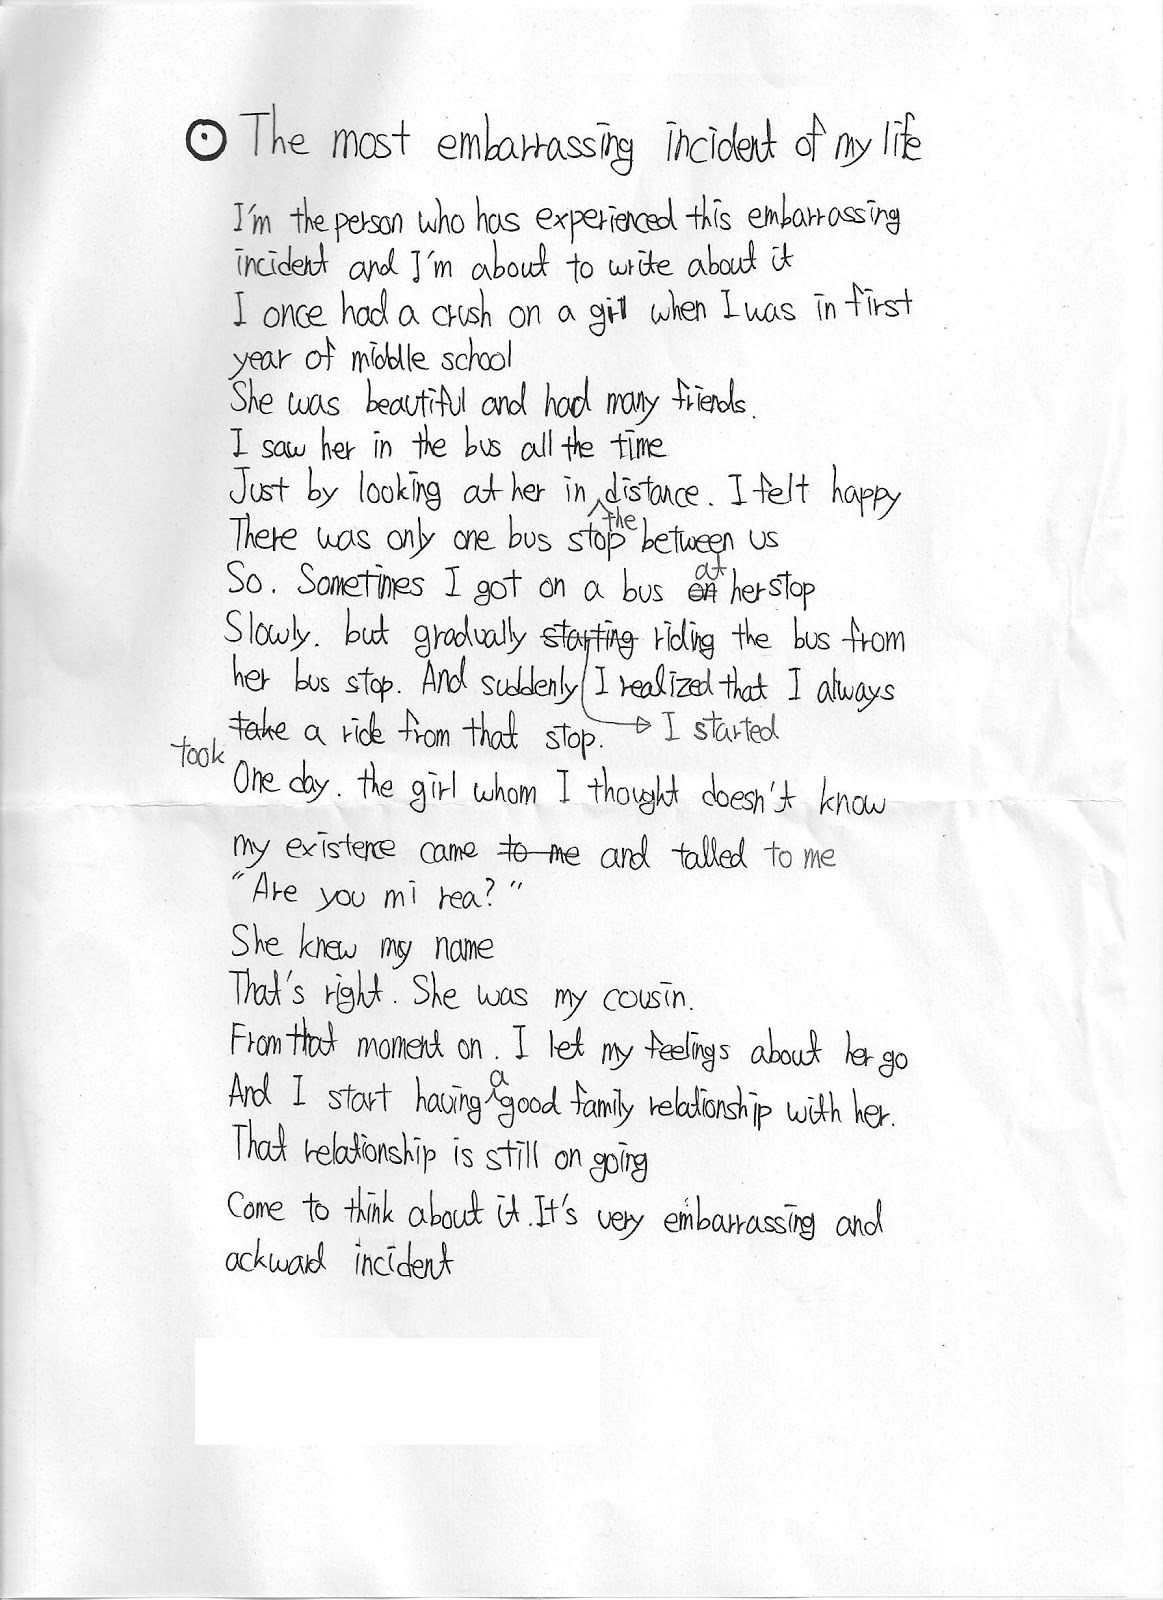 ⊙ The most embarrassing incident of my life
I'm the person who has experienced this embarrassing
incident and I'm about to write about it
I once had a crush on a girl when I was in first
year of middle school
She was beautiful and had many friends.
I saw her in the bus all the time
Just by looking at her in the distance. I felt happy
There was only one bus stop between us
So. Sometimes I got on a bus on at her stop
Slowly. but gradually starting riding the bus from
her bus stop. And suddenly I realized that I always
take a ride from that stop. I started
took
One day. the girl whom I thought doesn't know
my existence came to me and talled to me
"Are you mi rea?"
She knew my name
That's right. She was my cousin.
From that moment on. I let my feelings about her go
And I start having a good family relationship with her.
That relationship is still on going
Come to think about it. It's very embarrassing and
ackward incident